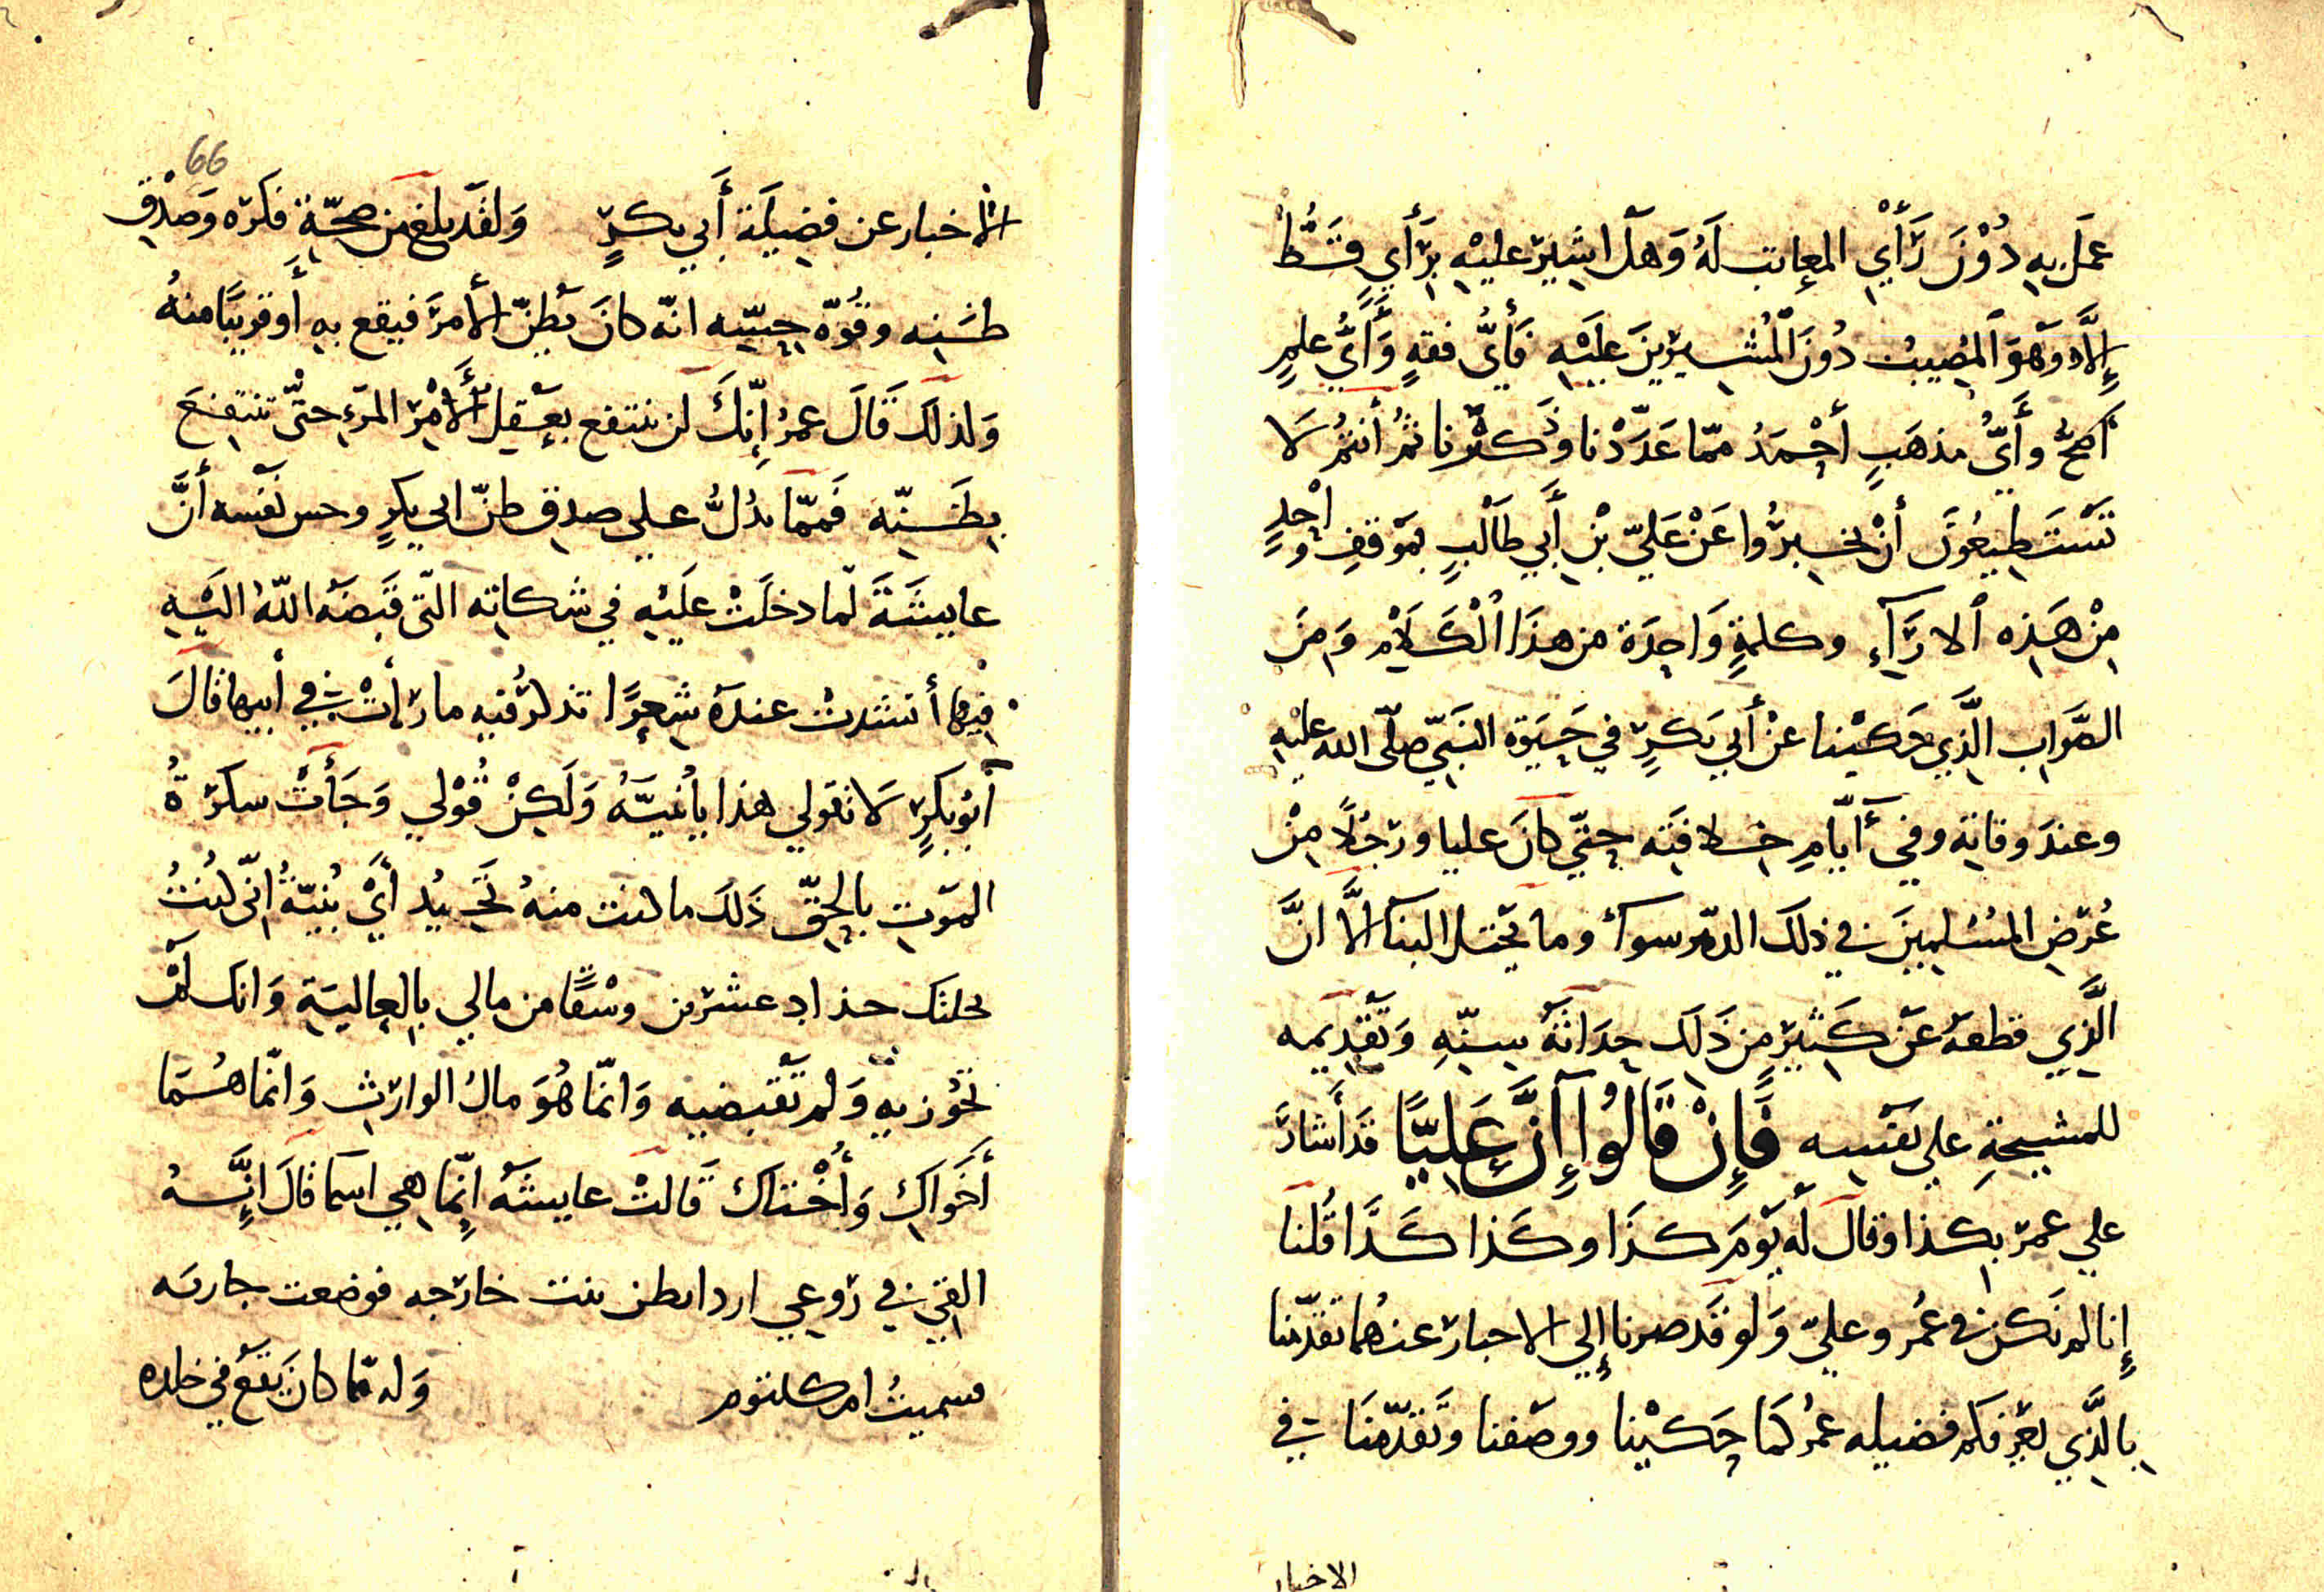 عمل به دُوْنَ رَأْيِ المعاتب لَهُ وَهَل اشِيْرَ عليْهِ بِرَأيٍ قَطُّ
إِلَّا وَهْوَ المُصِيبُ دُونَ الْمُشِيرِينَ عَلَيْهِ فَأيُّ فقهٍ وَأَيُّ علمٍ
أصحُّ وأَيُّ مذهَبٍ أحْمَدُ ممّا عَدَدْنا وذَكَرْنا ثمُ أنتُمُ لَا
تَسْتَطِيعُونَ أنْ تخبِرُوا عَنْ عَلِيّ بْنِ أَبِي طَالْبٍ بمَوْقفِ واحْدٍ
مِنْ هَذِه الارَآءِ وكلمةٍ وَاحِدَة من هذَا الْكَلَامِ وَمِنَ
الصَّوَابِ الَّذِي حَكَيْنا عنْ أَبِي بَكرٍ فِي حَيَوة النَبيّ صلّى الله عليْهِ
وعندَ وفاتِه وفي أيَّامِ خلافتَه حتّي كانَ عليا ورَجُلًا مِنْ
عُرْضِ المُسْلِمِينَ في ذلَكَ الدّهْر سوآءٌ وما يحتل البنآ الَّا انَّ
الَّذِي قطعهُ عَنْ كَثيْرٍ مِن ذَلَكَ حِدَاثَةُ سِنّهِ وَتَقْدِيمه
للمشيخةِ علي نفسه فَإِنْ قَالُوا إِنَّ عَلِيًّا قَد أَشارَ
علي عمرَ بِكذا وقالَ لَهُ يَوْمَ كذَا وكَذا كذَا قُلنا
إِنا لم نَكن في عُمر وعليّ وَلو قَد صرنا إلي الاخبار عنهُما تقدّمنا
بالَّذِي يعرّفكم فضيله عمرُ كَمَا حَكَيْنا ووصَفنا وتَقدّمنَا في
الاخبار
66
الاخبار عن فضِيلَة أَبي بكرٍ وَلقَد بلغ من صحَّةِ فكرَه وَصِدْقِ
ظنِه وقُوّة حِسِّه انّه كانَ يَظنّ الأَمرَ فيقع بهِ أَوقريبًا منهُ
وَلذلكَ قَالَ عمرُ إِنّكَ لن تنتفع بعَقلِ الْأَمْر المرَءِ حتّي تنتفعَ
بِظَنِّه فَممّا يدُلُّ علي صدِق ظنّ ابي بكرٍ وحس نَفْسه أَنَّ
عايشَةَ لَمّا دخلَتْ عَلَيْهِ في شكاته التّي قَبَضَهُ اللّهُ الَيْهِ
فيْها أنشدتْ عندَهُ شِعرًا تذكر فيه ما رَأتْ في أبيها قالَ
أَبُوبَكرٍ لَا تقولي هذا يابُنيَّهُ وَلَكِنْ قُوْلي وَجَأَتْ سكرَةُ
المَوْتِ بِالحقّ ذَلكَ ما كنت منهُ تَحيدُ أَيْ بُنيّةُ انّى كُنتُ
نحلتك حداد عشرين وسْقًا من مالي بِالعالِيَةِ وَانك لَمْ
تَحُوْزيهِ وَلم تَقْبضيه وَانّما هُوَ مالُ الوارثِ وَانّما هُمَا
أَخَواكِ وَأُخْتاكِ قَالتْ عايشَهُ إِنّما هي اسما قالَ انَّهُ
القي في رَوعي ان ذا بطن بنت خارجه فوضعت جاريه
فسميتُ ام كلثوم وَلم مّا كانَ يَقَعُ في خلده